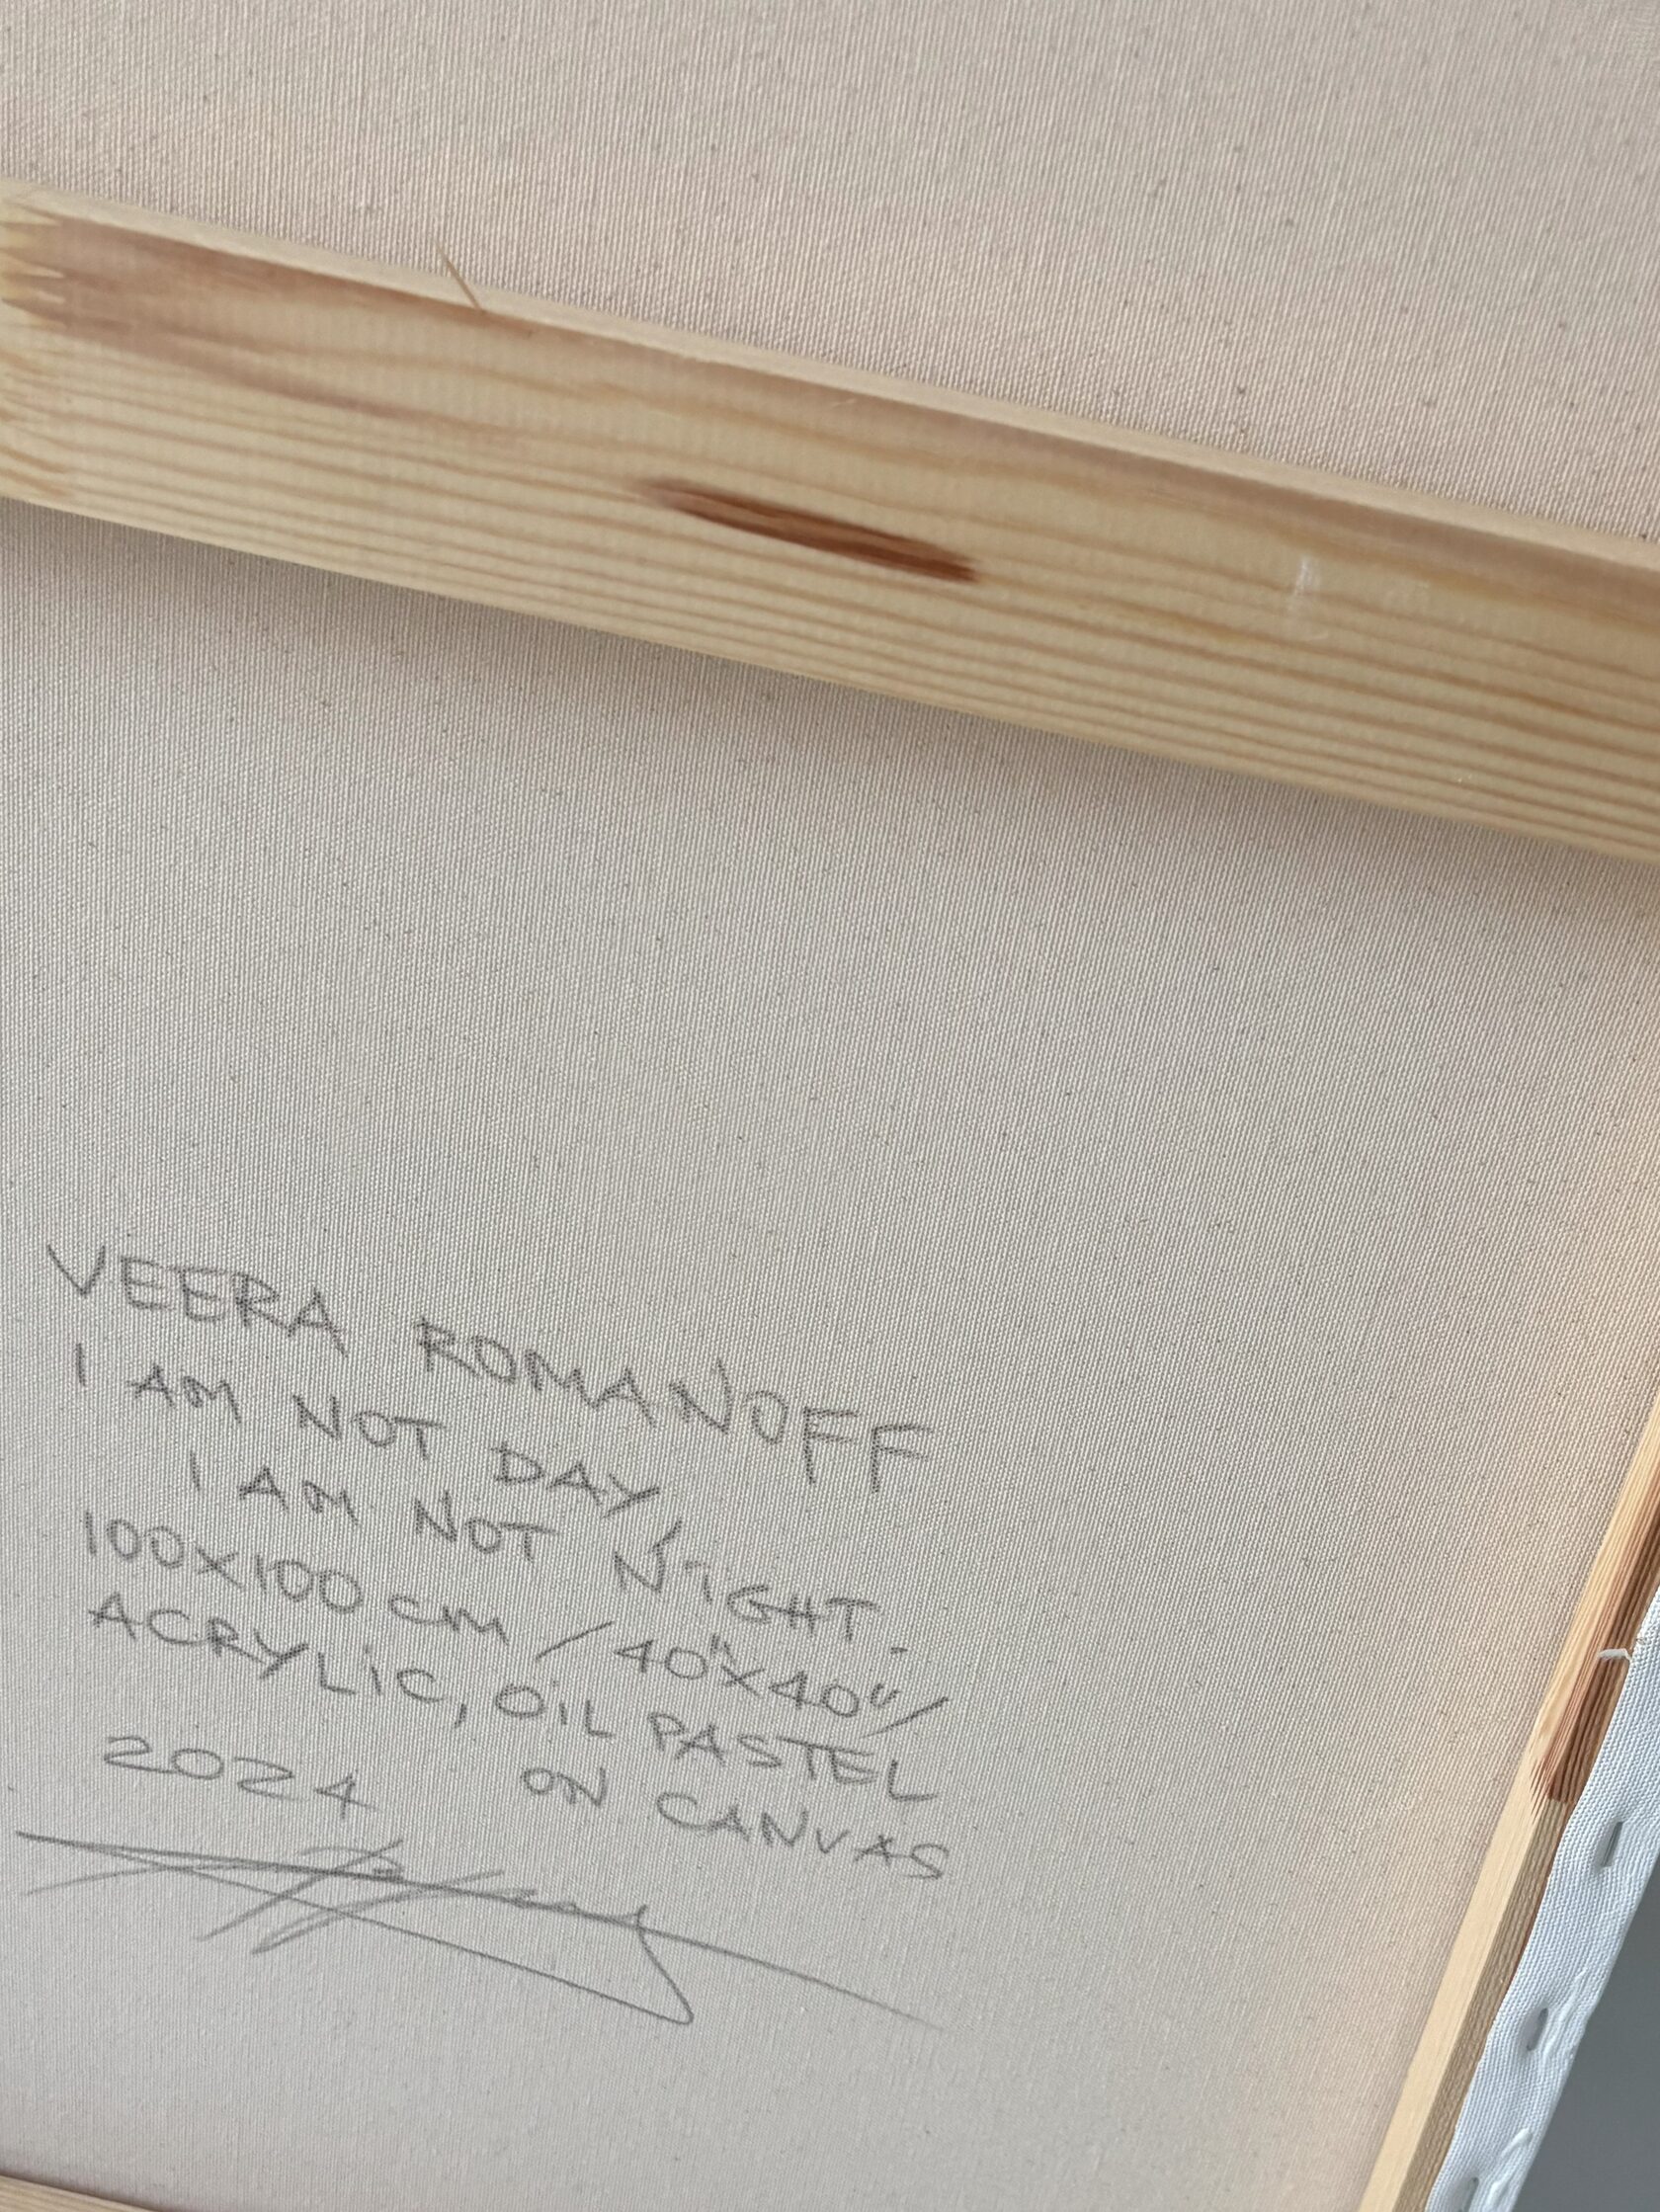 VEERA ROMANOFF
I AM NOT DAY,
I AM NOT NIGHT.
100X100 CM / 40"X40"/
ACRYLIC, OIL PASTEL
ON CANVAS
2024